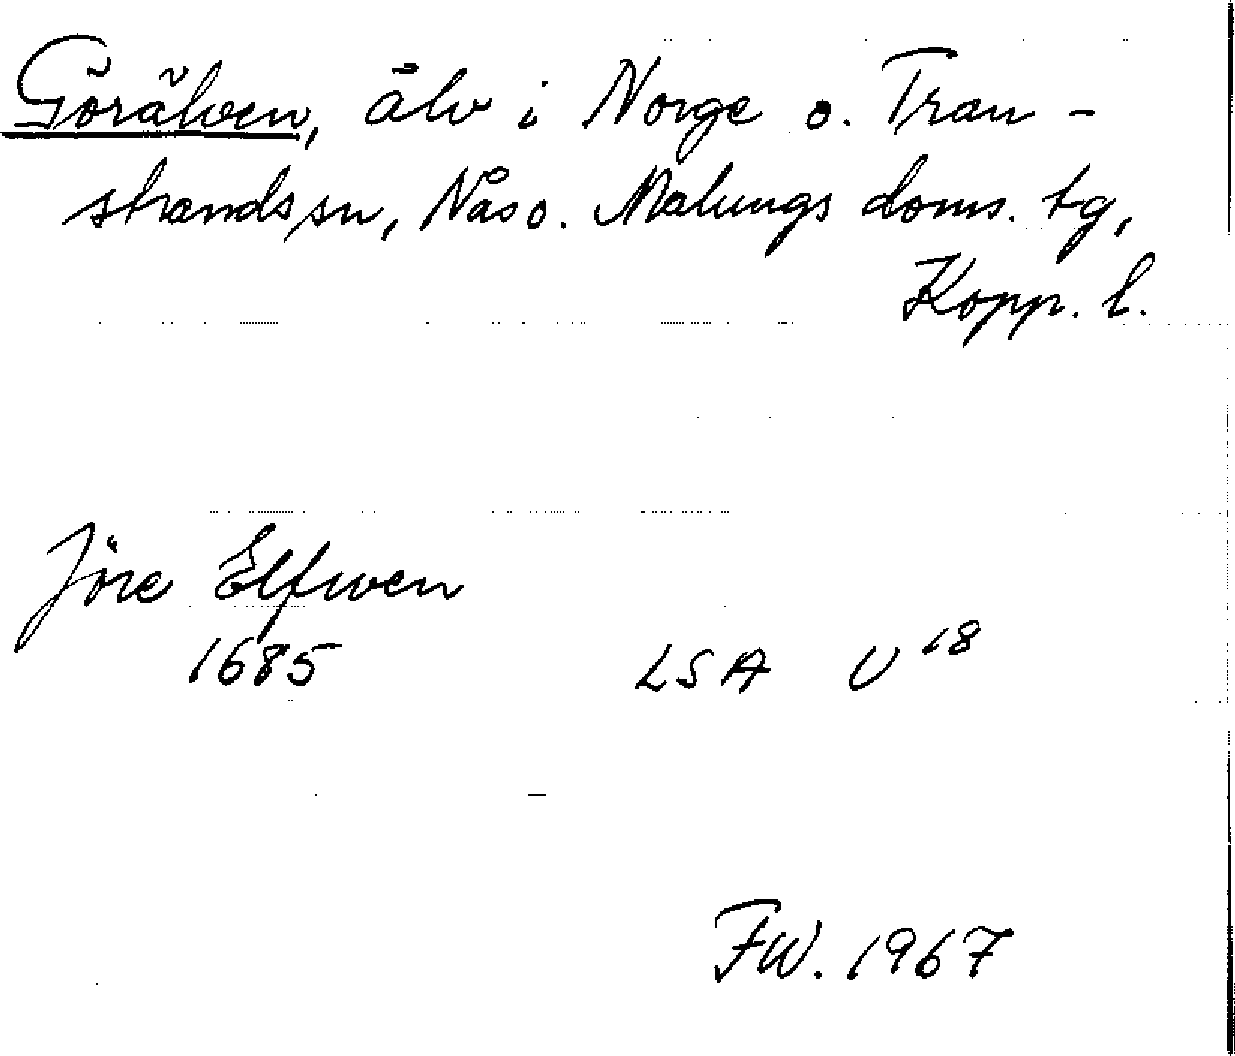 Görälven, älv i Norge o. Tran-
strands sn, Nås o. Malungs doms. tg,
Kopp. l.
Jöre Elfwen
1685 LSA U 18
FW. 1967